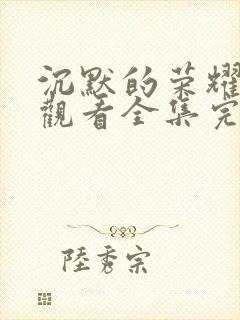 沉默的荣耀
觀看全集完
陸秀宗